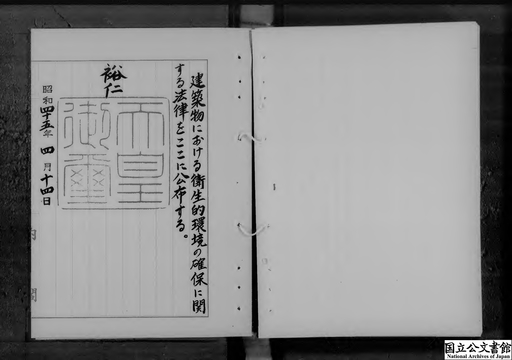 建築物における衛生的環境の確保に関
する法律をここに公布する。
裕仁
天皇
御璽
昭和四十五年四月十四日
内閣
国立公文書館
National Archives of Japan